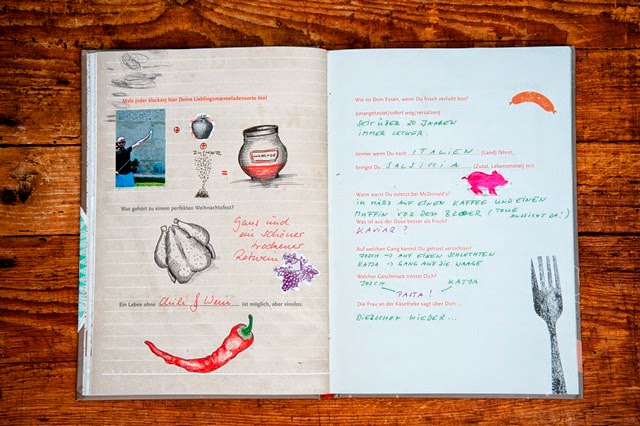 Male (oder kleckse) hier Deine Lieblingsmarmeladensorte hin!
+
+
ZUCKER
=
Was gehört zu einem perfekten Weihnachtsfest?
Gans und
ein schöner
trockener
Rotwein
Ein Leben ohne Chili & Wein ist möglich, aber sinnlos.
Wie ist Dein Essen, wenn Du frisch verliebt bist?
(unangetastet/sofort weg/versalzen)
SEIT ÜBER 20 JAHREN
IMMER LECKER.
Immer wenn Du nach ITALIEN (Land) fährst,
bringst Du SALSICCIA (Zutat, Lebensmittel) mit.
Wann warst Du zuletzt bei McDonald's?
IM MÄRZ AUF EINEN KAFFEE UND EINEN
MUFFIN VOR DEM (TOLLE
AUSSICHT DA!)
Was ist aus der Dose besser als frisch?
KAVIAR?
Auf welchen Gang kannst Du getrost verzichten?
JOSCH → AUF EINEN SCHLECHTEN
KATJA → GANG AUF DIE WAAGE
Welcher Geschmack tröstet Dich?
JOSCH KATJA
PASTA!
Die Frau an der Käsetheke sagt über Dich ...
DIE SCHON WIEDER...